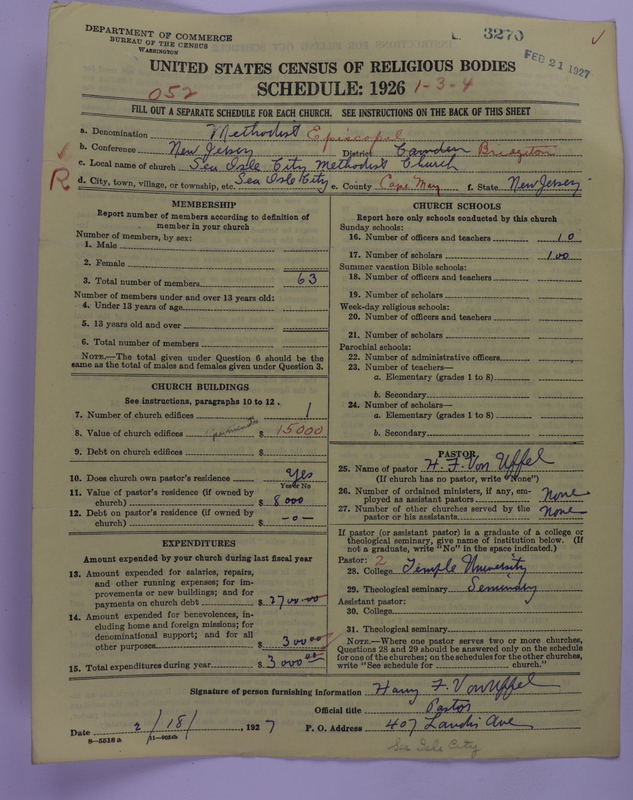 DEPARTMENT OF COMMERCE
BUREAU OF THE CENSUS
WASHINGTON
3270
FEB 21 1927
UNITED STATES CENSUS OF RELIGIOUS BODIES
SCHEDULE: 1926
052
1-3-4
FILL OUT A SEPARATE SCHEDULE FOR EACH CHURCH. SEE INSTRUCTIONS ON THE BACK OF THIS SHEET
a. Denomination Methodist Episcopal
b. Conference New Jersey District Camden Bridgeton
c. Local name of church Sea Isle City Methodist Church
R
d. City, town, village, or township, etc. Sea Isle City e. County Cape May f. State New Jersey
MEMBERSHIP
Report number of members according to definition of
member in your church
Number of members, by sex:
1. Male
2. Female
3. Total number of members 63
Number of members under and over 13 years old:
4. Under 13 years of age
5. 13 years old and over
6. Total number of members
NOTE.—The total given under Question 6 should be
same as the total of males and females given under Question 3.
CHURCH BUILDINGS
See instructions, paragraphs 10 to 12.
7. Number of church edifices 1
8. Value of church edifices $ 15000
9. Debt on church edifices $
10. Does church own pastor's residence Yes
Yes or No
11. Value of pastor's residence (if owned by
church) $ 8000
12. Debt on pastor's residence (if owned by
church) $ -0-
EXPENDITURES
Amount expended by your church during last fiscal year
13. Amount expended for salaries, repairs,
and other running expenses; for im-
provements or new buildings; and for
payments on church debt $ 2700.00
14. Amount expended for benevolences, in-
cluding home and foreign missions; for
denominational support; and for all
other purposes $ 300 00
15. Total expenditures during year $ 3000 00
CHURCH SCHOOLS
Report here only schools conducted by this church
Sunday schools:
16. Number of officers and teachers 10
17. Number of scholars 100
Summer vacation Bible schools:
18. Number of officers and teachers
19. Number of scholars
Week-day religious schools:
20. Number of officers and teachers
21. Number of scholars
Parochial schools:
22. Number of administrative officers
23. Number of teachers—
a. Elementary (grades 1 to 8)
b. Secondary
24. Number of scholars—
a. Elementary (grades 1 to 8)
b. Secondary
PASTOR
25. Name of pastor H. F. Von Uffel
(If church has no pastor, write "None")
26. Number of ordained ministers, if any, em-
ployed as assistant pastors None
27. Number of other churches served by the
pastor or his assistants None
If pastor (or assistant pastor) is a graduate of a college or
theological seminary, give name of institution below. (If
not a graduate, write "No" in the space indicated.)
Pastor: 2
28. College Temple University
29. Theological seminary Seminary
Assistant pastor:
30. College
31. Theological seminary
NOTE.—Where one pastor serves two or more churches,
Questions 28 and 29 should be answered only on the schedule
for one of the churches; on the schedules for the other churches,
write "See schedule for church."
Signature of person furnishing information Harry F. Von Uffel
Official title Pastor
Date 2/18/, 1927 P. O. Address 407 Landis Ave
8-5518 a
Sea Isle City